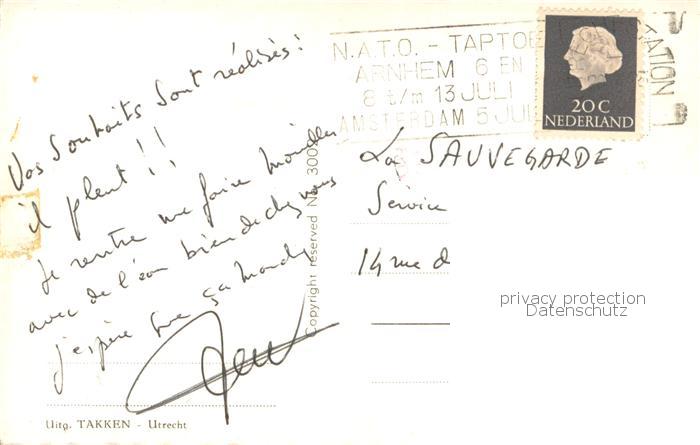 Vos souhaits sont réalisés :
il pleut !!
Je rentre me faire mouiller
avec de l'eau bien de chez nous
j'espère que ça
Uitg. TAKKEN - Utrecht
Copyright reserved No. 300
N.A.T.O. - TAPTOE
ARNHEM 6 EN
8 t/m 13 JULI
AMSTERDAM 5 JULI
20 C
NEDERLAND
La SAUVEGARDE
Service
14 rue d
privacy protection
Datenschutz